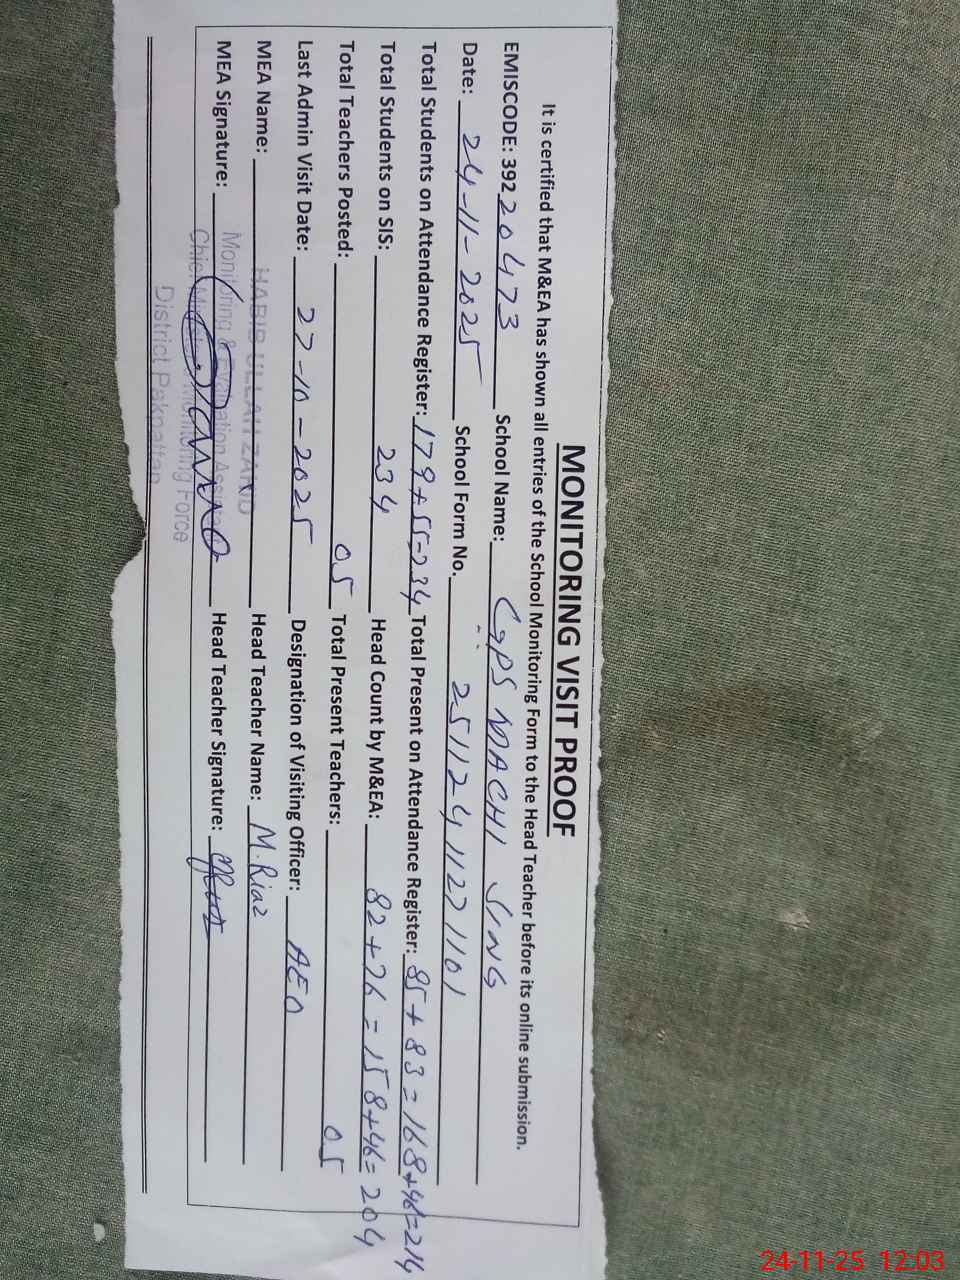 MONITORING VISIT PROOF
It is certified that M&EA has shown all entries of the School Monitoring Form to the Head Teacher before its online submission.
EMISCODE: 39220473 School Name: GPS MACHI SING
Date: 24-11-2025 School Form No. 251124112271101
Total Students on Attendance Register: 179+55=234 Total Present on Attendance Register: 85+83=168+46=214
Total Students on SIS: 234 Head Count by M&EA: 82+76=158+46=204
Total Teachers Posted: 05 Total Present Teachers: 05
Last Admin Visit Date: 27-10-2025 Designation of Visiting Officer: AEO
MEA Name: HABIB ULLAH Head Teacher Name: M.Riaz
MEA Signature: Head Teacher Signature:
Monitoring & Evaluation Assistant
Chief Monitoring Force
District Pakpattan
24-11-25 12:03